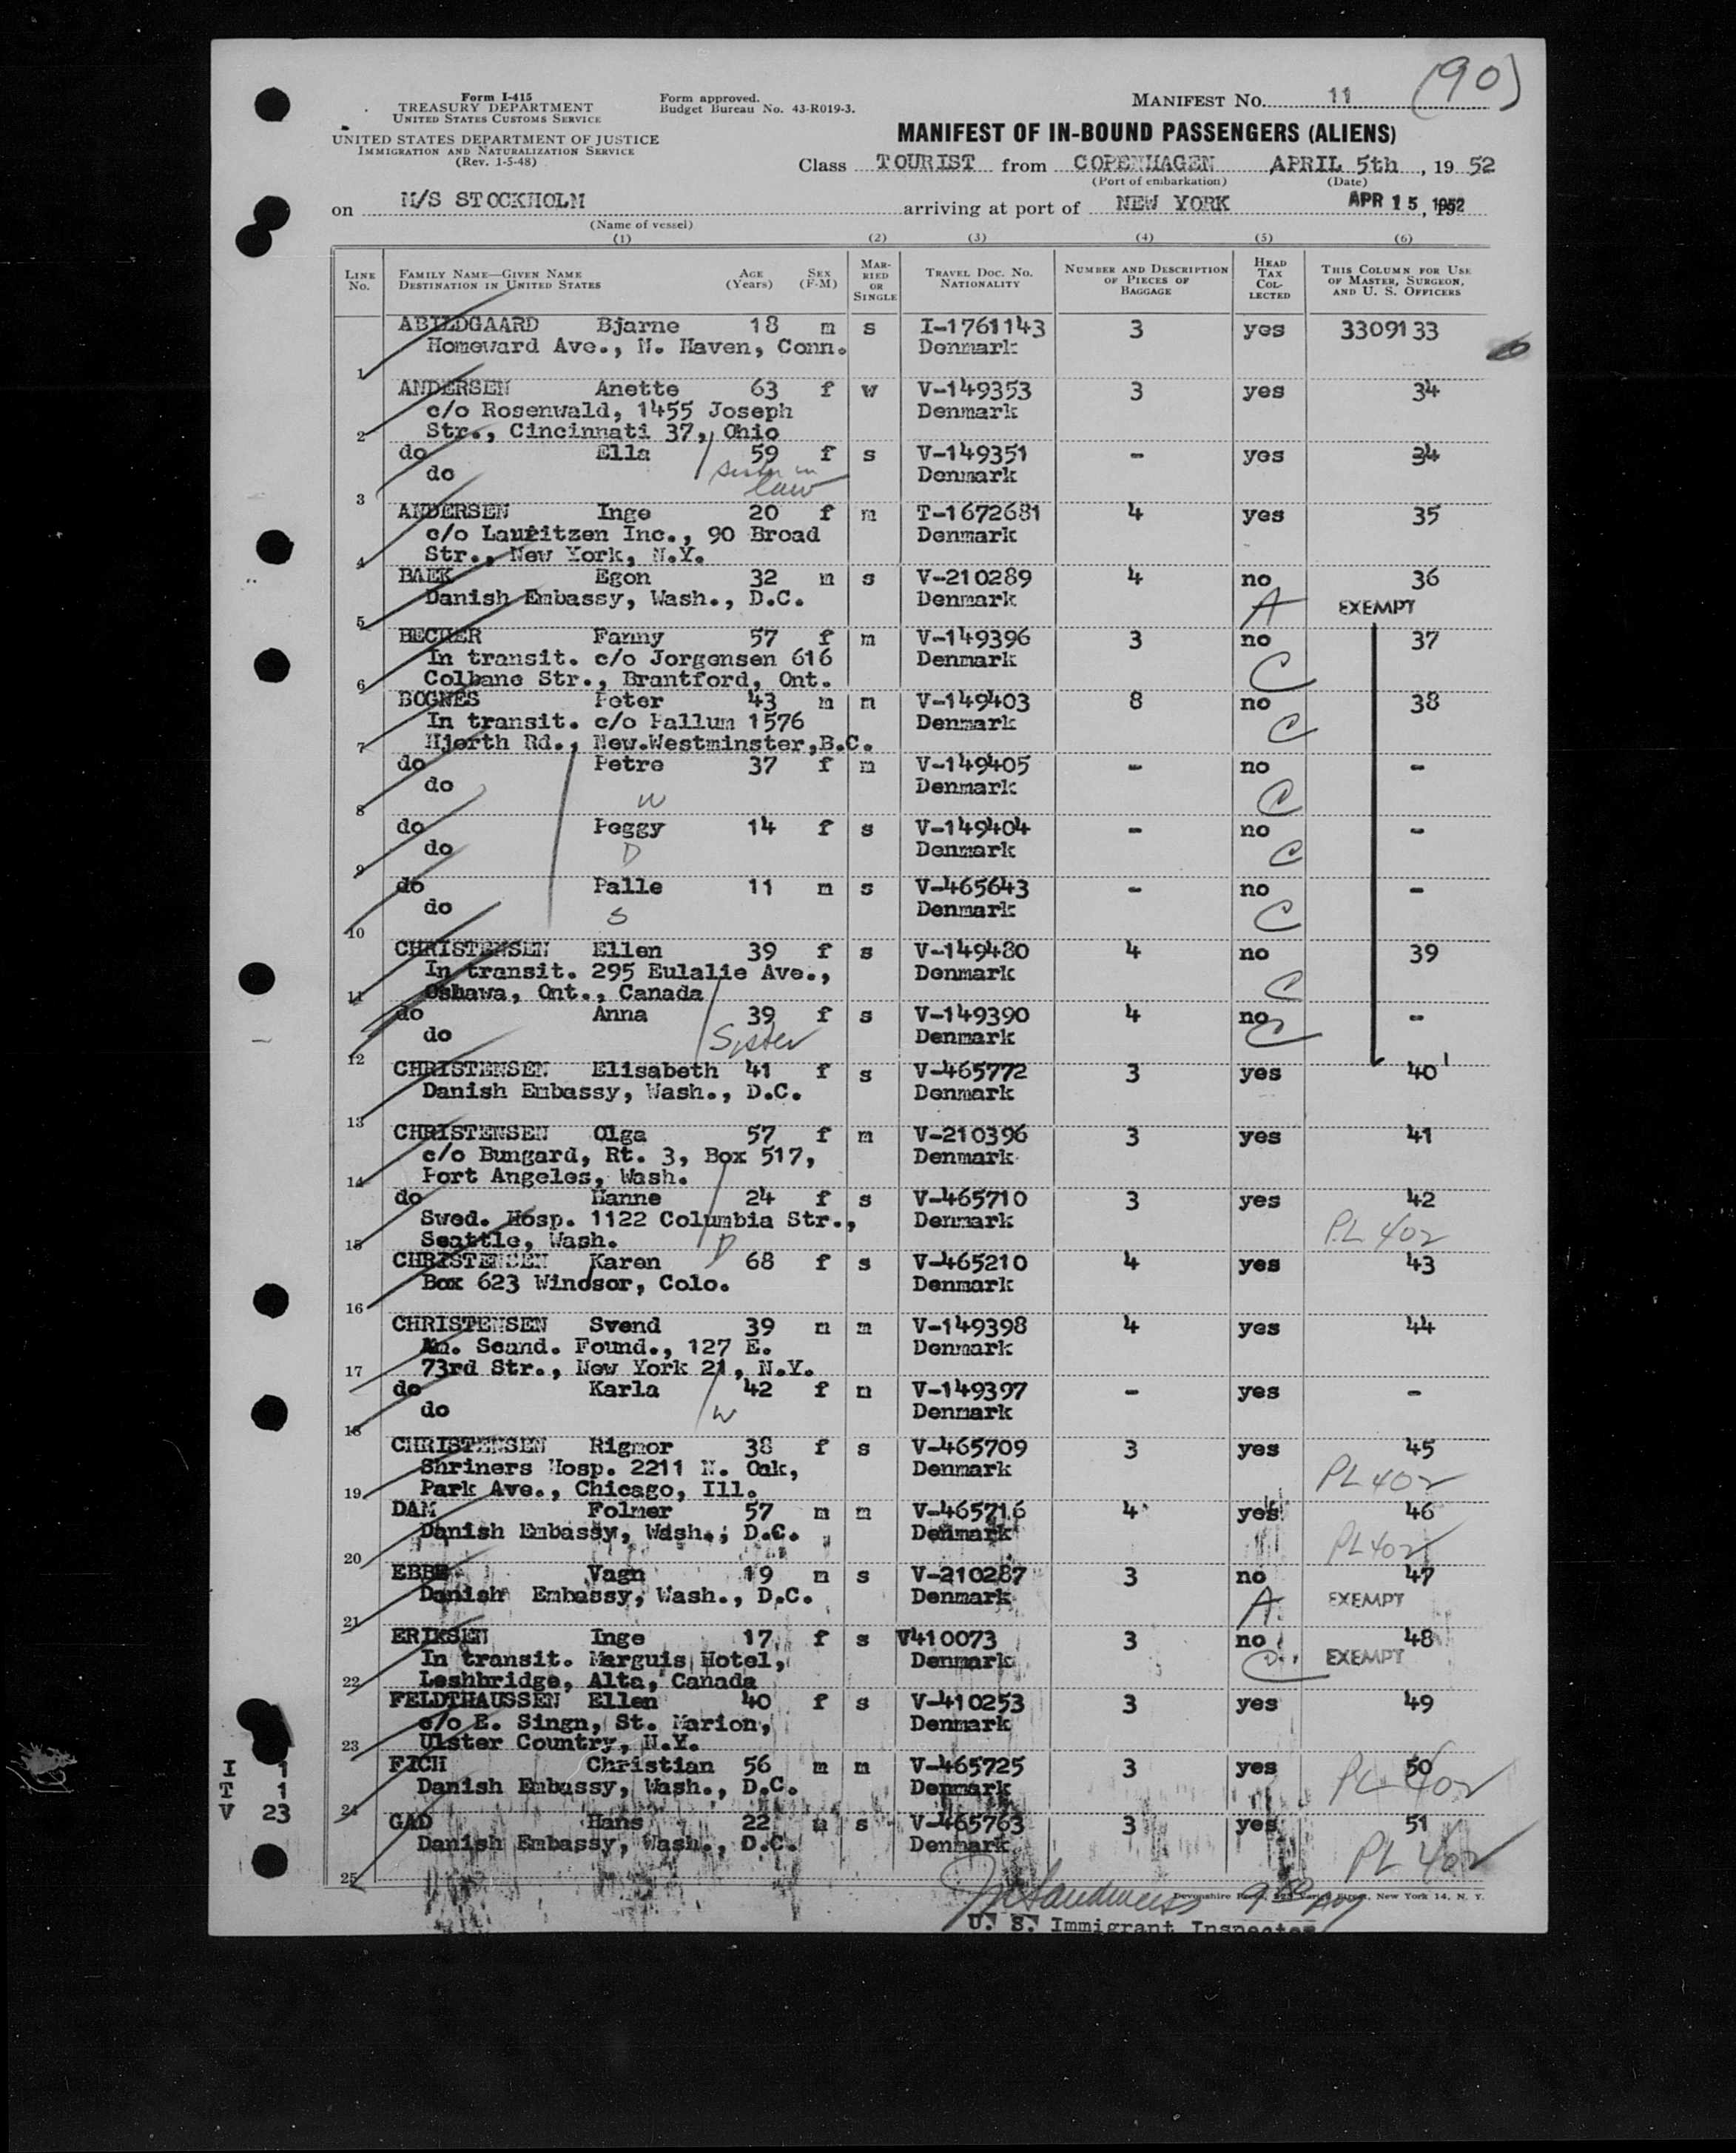 (90)
Form I-415
TREASURY DEPARTMENT
UNITED STATES CUSTOMS SERVICE
UNITED STATES DEPARTMENT OF JUSTICE
IMMIGRATION AND NATURALIZATION SERVICE
(Rev. 1-5-48)
Form approved.
Budget Bureau No. 43-R019-3.
MANIFEST NO. 11
MANIFEST OF IN-BOUND PASSENGERS (ALIENS)
Class TOURIST from COPENHAGEN APRIL 5th, 19 52
(Port of embarkation) (Date)
on M/S STOCKHOLM arriving at port of NEW YORK APR 15, 1952
(Name of vessel)
(1) (2) (3) (4) (5) (6)
LINE NO. FAMILY NAME—GIVEN NAME DESTINATION IN UNITED STATES AGE (Years) SEX (F-M) MARRIED OR SINGLE TRAVEL DOC. NO. NATIONALITY NUMBER AND DESCRIPTION OF PIECES OF BAGGAGE HEAD TAX COLLECTED THIS COLUMN FOR USE OF MASTER, SURGEON, AND U. S. OFFICERS
ABILDGAARD Bjarne 18 m s I-1761143 3 yes 3309133
Homeward Ave., N. Haven, Conn. Denmark
1
ANDERSEN Anette 63 f w V-149353 3 yes 34
c/o Rosenwald, 1455 Joseph Denmark
2 Str., Cincinnati 37, Ohio
do Ella 59 f s V-149351 - yes 34
do sister in law Denmark
3
ANDERSEN Inge 20 f m T-1672681 4 yes 35
c/o Lauritzen Inc., 90 Broad Denmark
4 Str., New York, N.Y.
BAEK Egon 32 m s V-210289 4 no 36
Danish Embassy, Wash., D.C. Denmark A EXEMPT
5
BECHER Fanny 57 f m V-149396 3 no 37
In transit. c/o Jorgensen 616 Denmark C
6 Colbane Str., Brantford, Ont.
BOGNES Peter 43 m m V-149403 8 no 38
In transit. c/o Pallum 1576 Denmark C
7 Hjorth Rd., New.Westminster,B.C.
do Petre 37 f m V-149405 - no -
do W Denmark C
8
do Peggy 14 f s V-149404 - no -
do D Denmark C
9
do Palle 11 m s V-465643 - no -
do S Denmark C
10
CHRISTENSEN Ellen 39 f s V-149480 4 no 39
In transit. 295 Eulalie Ave., Denmark C
11 Oshawa, Ont., Canada
do Anna 39 f s V-149390 4 no -
do Sister Denmark C
12
CHRISTENSEN Elisabeth 41 f s V-465772 3 yes 40
Danish Embassy, Wash., D.C. Denmark
13
CHRISTENSEN Olga 57 f m V-210396 3 yes 41
c/o Bungard, Rt. 3, Box 517, Denmark
14 Port Angeles, Wash.
do Hanne 24 f s V-465710 3 yes 42
Swed. Hosp. 1122 Columbia Str., Denmark PL 402
15 Seattle, Wash. D
CHRISTENSEN Karen 68 f s V-465210 4 yes 43
Box 623 Windsor, Colo. Denmark
16
CHRISTENSEN Svend 39 m m V-149398 4 yes 44
Am. Scand. Found., 127 E. Denmark
17 73rd Str., New York 21, N.Y.
do Karla 42 f m V-149397 - yes -
do W Denmark
18
CHRISTENSEN Rigmor 38 f s V-465709 3 yes 45
Shriners Hosp. 2211 N. Oak, Denmark PL 402
19 Park Ave., Chicago, Ill.
DAM Folmer 57 m m V-465716 4 yes 46
Danish Embassy, Wash., D.C. Denmark PL 402
20
EBBE Vagn 19 m s V-210287 3 no 47
Danish Embassy, Wash., D.C. Denmark A EXEMPT
21
ERIKSEN Inge 17 f s V410073 3 no 48
In transit. Marguis Hotel, Denmark C EXEMPT
22 Leshbridge, Alta, Canada
FELDTHAUSSEN Ellen 40 f s V-410253 3 yes 49
c/o E. Singn, St. Marion, Denmark
23 Ulster Country, N.Y.
FICH Christian 56 m m V-465725 3 yes 50
Danish Embassy, Wash., D.C. Denmark PL 402
24
GAD Hans 22 m s V-465763 3 yes 51
Danish Embassy, Wash., D.C. Denmark PL 402
25
I 1
T 1
V 23
Devonshire Varick Street, New York 14, N. Y.
U. S. Immigrant Inspector